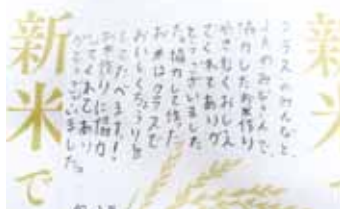 クラスのみんなと、
JAのみなさんで、
協力したお米作り
やさしくおしえ
てくれてありが
とうございました
た。協力して作った
お米はクラスで
おいしくちょうりを
してたべます!
お米作りに協力
してくれてあり
がとうございました。
新米で
新米